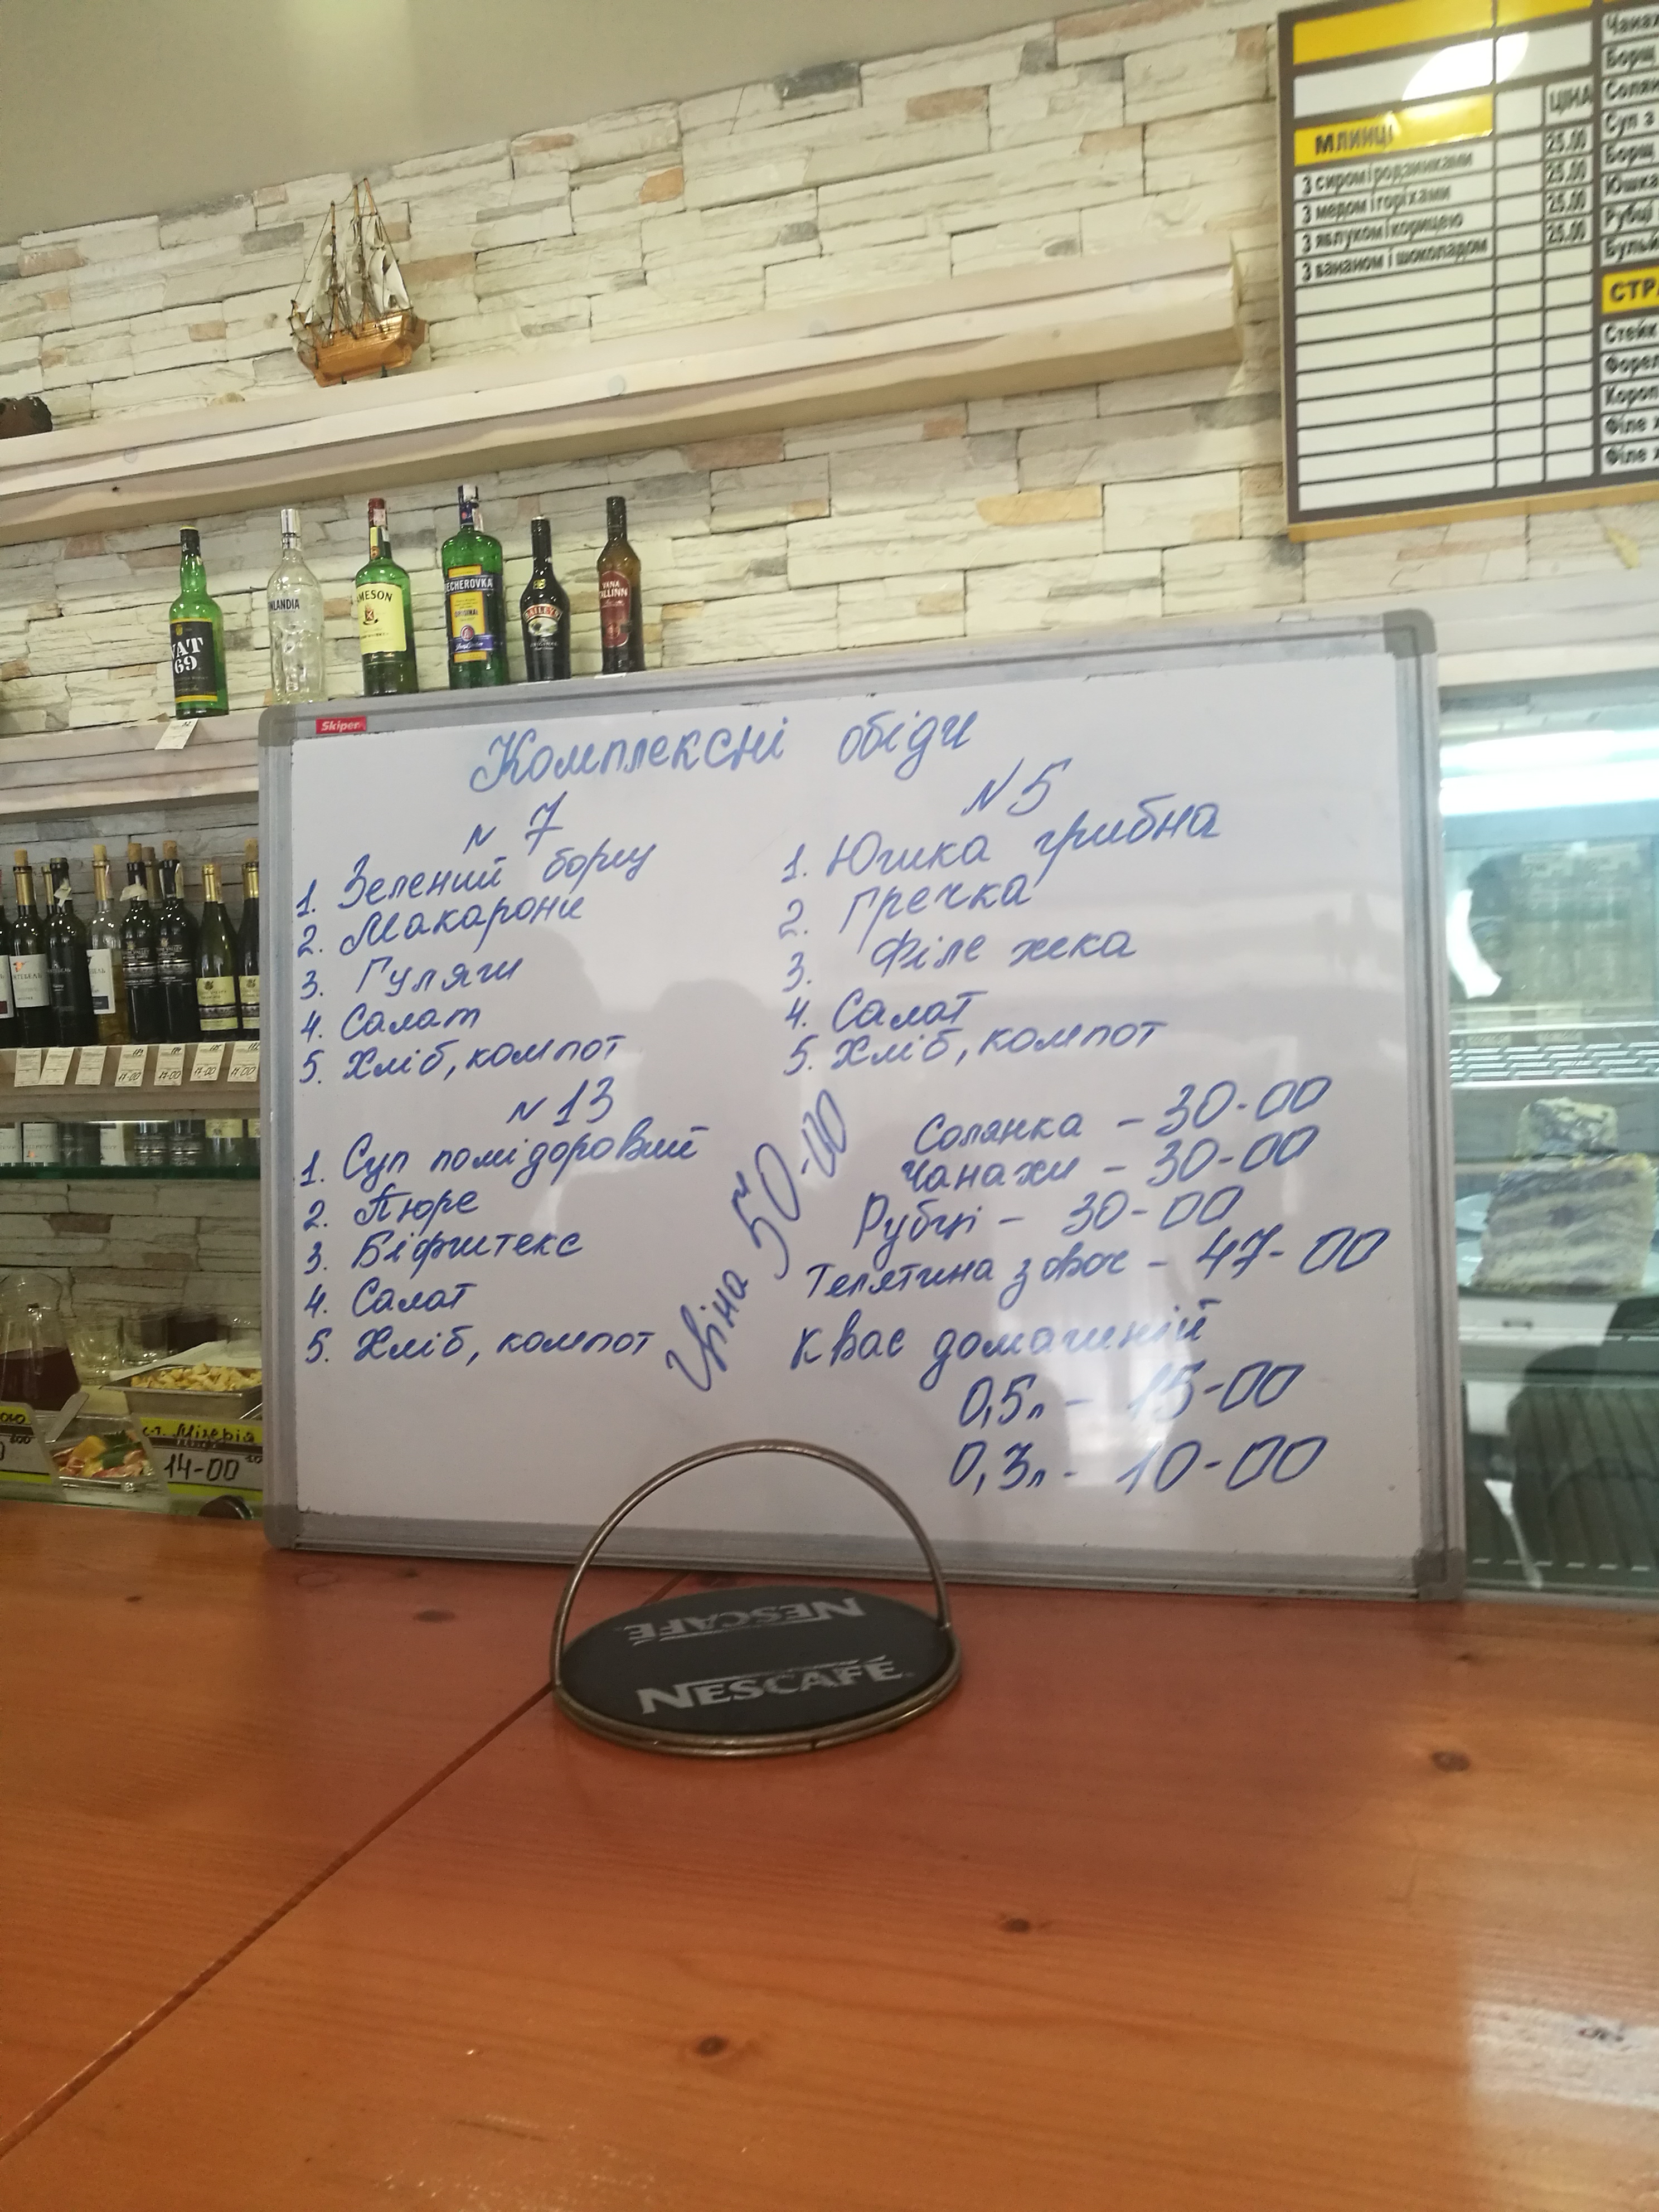 ЦІНА
МЛИНЦІ
З сиром і родзинками 25.00
З медом і горіхами 25.00
З яблуком і корицею 25.00
З бананом і шоколадом 25.00
Чанах
Борщ
Солян
Суп з
Борщ
Юшка
Рубці
Бульй
СТРА
Стейк
Форел
Короп
Філе х
Філе х
VAT
69
NLANDIA
MESON
ECHEROVKA
ORIGINAL
BAILEYS
VANA
TALLINN
Skiper
Комплексні обіди
N 7
1. Зелений борщ
2. Макарони
3. Гуляш
4. Салат
5. Хліб, компот
N 13
1. Суп помідоровий
2. Пюре
3. Біфштекс
4. Салат
5. Хліб, компот
Ціна 50-00
N 5
1. Юшка грибна
2. Гречка
3. Філе хека
4. Салат
5. Хліб, компот
Солянка - 30-00
Чанахи - 30-00
Рубці - 30-00
Телятина з овоч - 47-00
Квас домашній
0,5л - 15-00
0,3л - 10-00
Мізерія
14-00
NESCAFÉ
NESCAFÉ